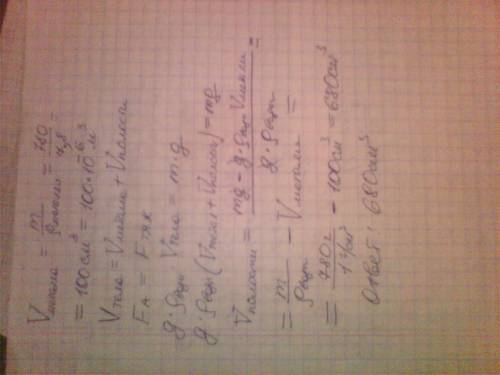 Vметалла = m/ρметалла = 780/7,8 =
= 100 см³ = 100*10⁻⁶ м³
Vтела = Vметалла + Vполости
FA = Fтяж
g·ρводы Vтела = m·g
g·ρводы (Vметал + Vполости) = mg
Vполости = (mg - g·ρводы Vметалл)/(g·ρводы) =
= m/ρводы - Vметалла =
= 780г/1 г/см³ - 100см³ = 680см³
Ответ: 680см³